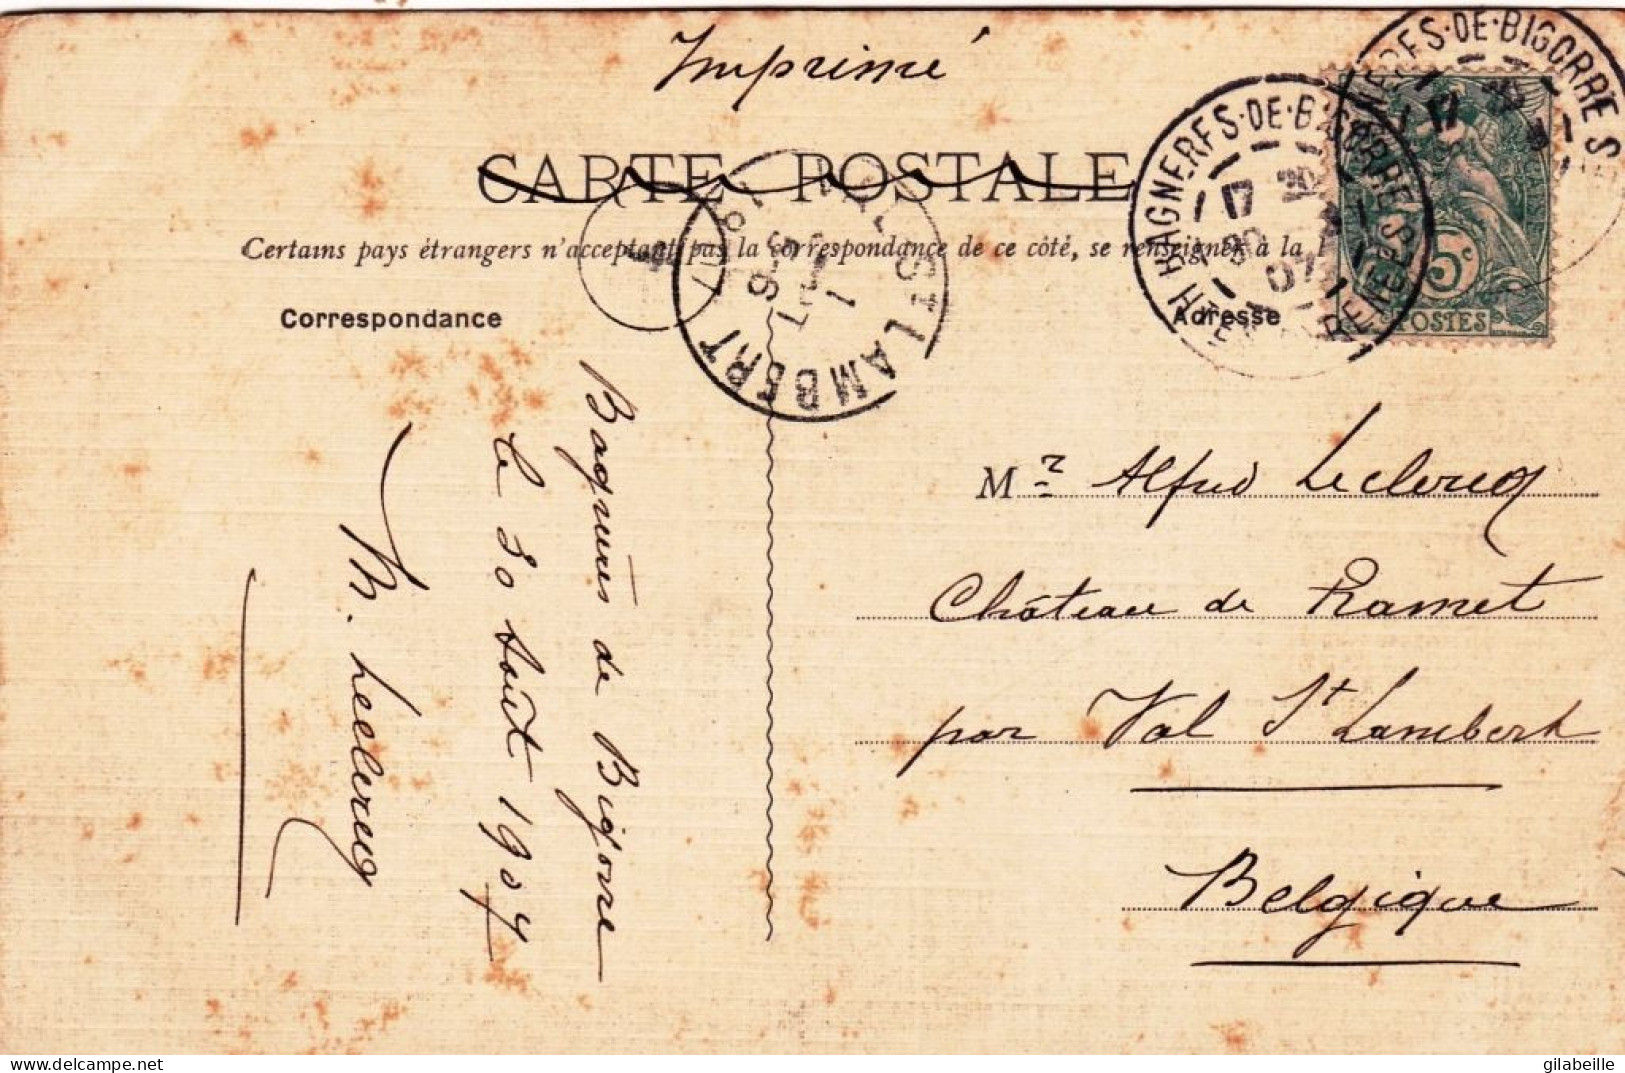 Imprimé
CARTE POSTALE
Certains pays étrangers n'acceptant pas la correspondance de ce côté, se renseigner à la
Correspondance
Adresse
BAGNERES-DE-BIGORRE
17 30
8
07
BAGNERES-DE-BIGORRE
POSTES
5c
VAL ST LAMBERT
9-S
1
1907
Bagnères de Bigorre
le 30 Août 1907
M. Leclercq
Mr Alfred Leclercq
Château de Ramet
par Val St Lambert
Belgique
delcampe.net
gilabeille